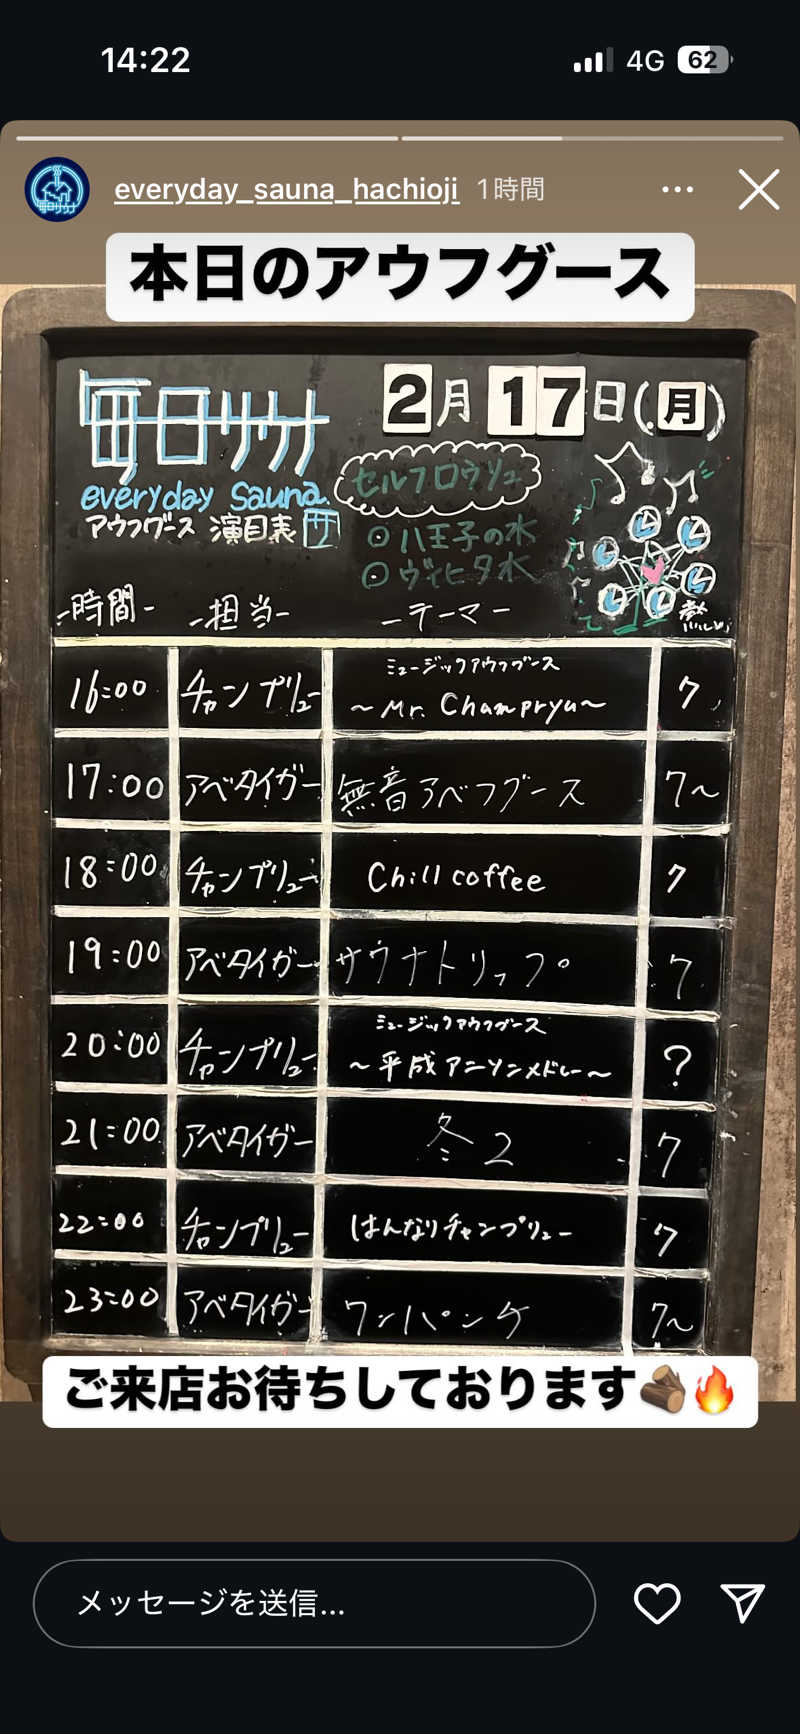 14:22
4G 62
everyday_sauna_hachioji 1時間
本日のアウフグース
毎日サウナ
2月17日(月)
everyday Sauna.
アウフグース 演目表
セルフロウリュ
八王子の水
ヴィヒタ水
-時間- -担当- -テーマー
16:00 チャンプリュー ミュージックアウフグース
~Mr. Champryu~ 7
17:00 アベタイガー 無音アベフグース 7~
18:00 チャンプリュー Chill coffee 7
19:00 アベタイガー サウナトリップ。 7
20:00 チャンプリュー ミュージックアウフグース
~平成アニソンメドレー~ ?
21:00 アベタイガー 冬2 7
22:00 チャンプリュー はんなりチャンプリュー 7
23:00 アベタイガー ワンパンケ 7~
ご来店お待ちしております🪵🔥
メッセージを送信...